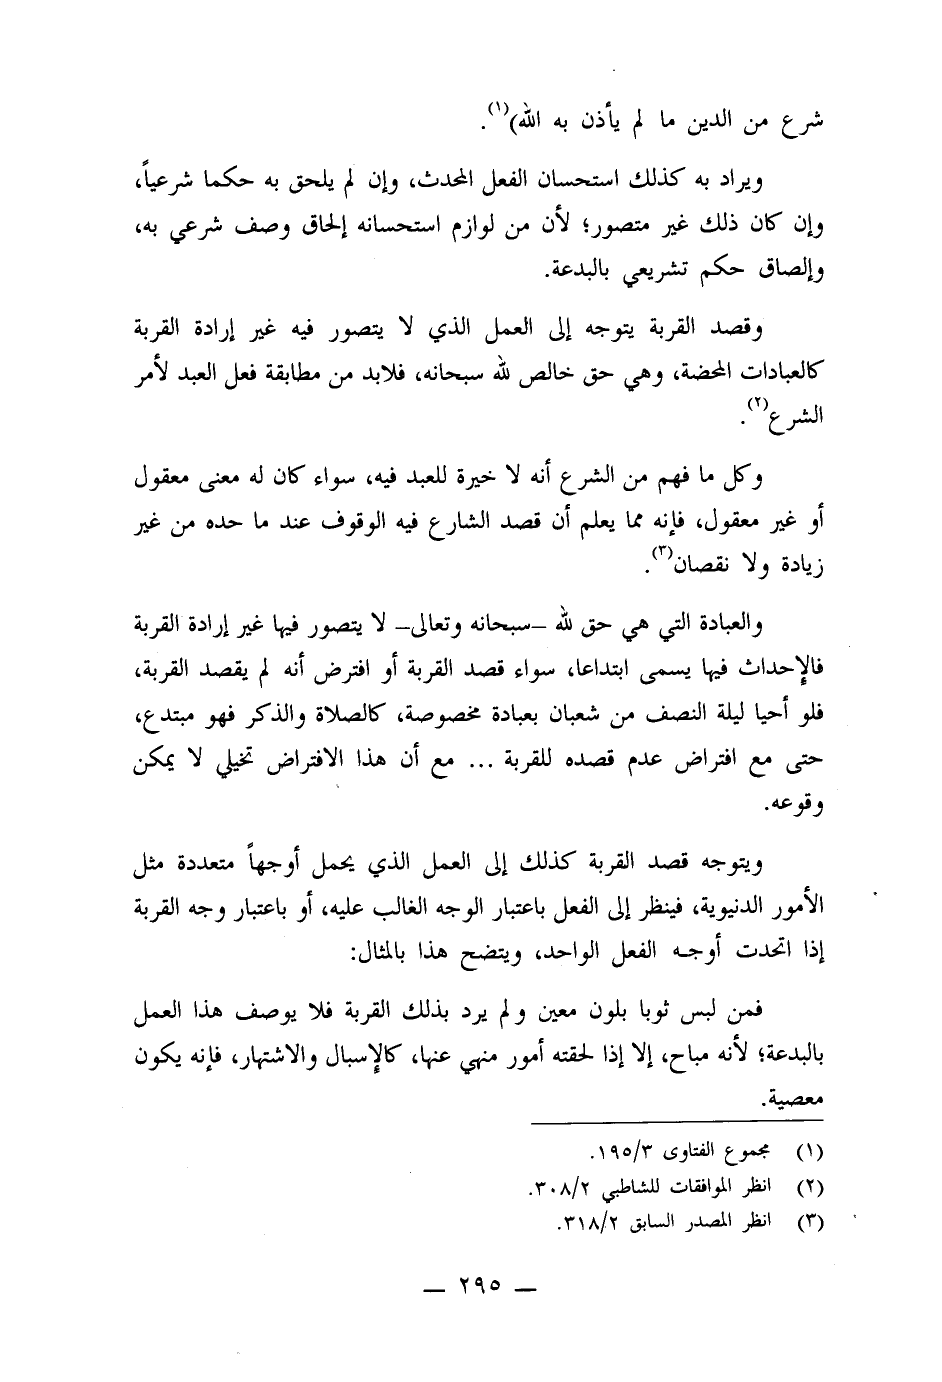 شرع من الدين ما لم يأذن به الله)(١).
ويراد به كذلك استحسان الفعل المحدث، وإن لم يلحق به حكما شرعياً،
وإن كان ذلك غير متصور؛ لأن من لوازم استحسانه إلحاق وصف شرعي به،
وإلصاق حكم تشريعي بالبدعة.
وقصد القربة يتوجه إلى العمل الذي لا يتصور فيه غير إرادة القربة
كالعبادات المحضة، وهي حق خالص لله سبحانه، فلابد من مطابقة فعل العبد لأمر
الشرع(٢).
وكل ما فهم من الشرع أنه لا خيرة للعبد فيه، سواء كان له معنى معقول
أو غير معقول، فإنه مما يعلم أن قصد الشارع فيه الوقوف عند ما حده من غير
زيادة ولا نقصان(٣).
والعبادة التي هي حق لله –سبحانه وتعالى– لا يتصور فيها غير إرادة القربة
فالإحداث فيها يسمى ابتداعا، سواء قصد القربة أو افترض أنه لم يقصد القربة،
فلو أحيا ليلة النصف من شعبان بعبادة مخصوصة، كالصلاة والذكر فهو مبتدع،
حتى مع افتراض عدم قصده للقربة ... مع أن هذا الافتراض تخيلي لا يمكن
وقوعه.
ويتوجه قصد القربة كذلك إلى العمل الذي يحمل أوجهاً متعددة مثل
الأمور الدنيوية، فينظر إلى الفعل باعتبار الوجه الغالب عليه، أو باعتبار وجه القربة
إذا اتحدت أوجه الفعل الواحد، ويتضح هذا بالمثال:
فمن لبس ثوبا بلون معين ولم يرد بذلك القربة فلا يوصف هذا العمل
بالبدعة؛ لأنه مباح، إلا إذا لحقته أمور منهي عنها، كالإسبال والاشتهار، فإنه يكون
معصية.
(١) مجموع الفتاوى ١٩٥/٣.
(٢) انظر الموافقات للشاطبي ٣٠٨/٢.
(٣) انظر المصدر السابق ٣١٨/٢.
— ٢٩٥ —